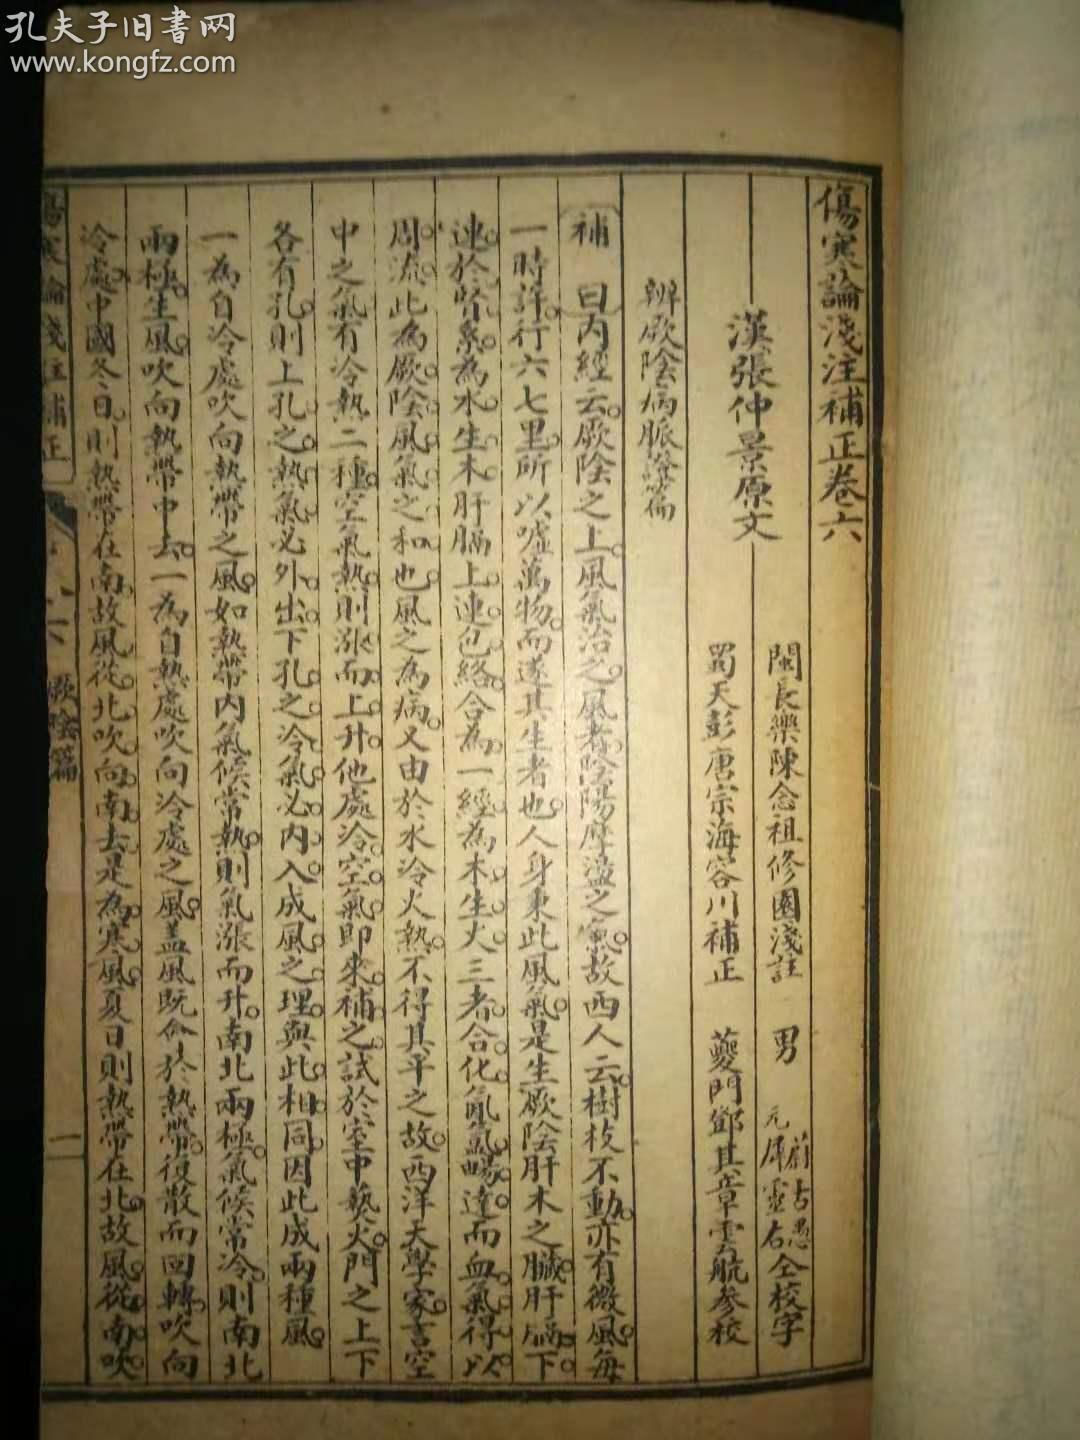 孔夫子旧書网
www.kongfz.com
傷寒論淺注補正卷六
漢張仲景原文
閩長樂陳念祖修園淺註 男 蔚古愚 元犀靈石 仝校字
蜀天彭唐宗海容川補正 夔門鄧其章雲航參校
辨厥陰病脈證篇
補曰內經云厥陰之上風氣治之風者陰陽摩盪之氣故西人云樹枝不動亦有微風每
一時許行六七里所以噓萬物而遂其生者也人身秉此風氣是生厥陰肝木之臟肝膈下
連於腎系為水生木肝膈上連包絡合為一經為木生火三者合化氤氳暢達而血氣得以
周流此為厥陰風氣之和也風之為病又由於水冷火熱不得其平之故西洋天學家言空
中之氣有冷熱二種空氣熱則漲而上升他處冷空氣即來補之試於室中爇火門之上下
各有孔則上孔之熱氣必外出下孔之冷氣必內入成風之理與此相同因此成兩種風
一為自冷處吹向熱帶之風如熱帶內氣候常熱則氣漲而升南北兩極氣候常冷則南北
兩極生風吹向熱帶中去一為自熱處吹向冷處之風蓋風既會於熱帶復散而回轉吹向
冷處中國冬日則熱帶在南故風從北吹向南去是為寒風夏日則熱帶在北故風從南吹
傷寒論淺註補正 厥陰篇 一